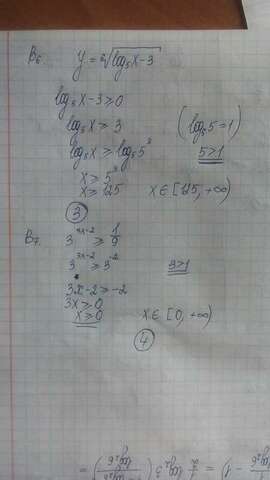 B6 y = ²√(log₅x-3)
log₅x-3≥0
log₅x ≥ 3 (log₅5=1)
log₅x ≥ log₅5³ 5>1
x ≥ 5³
x ≥ 125 x∈[125, +∞)
3
B7 3^(3x-2) ≥ 1/9
3^(3x-2) ≥ 3^(-2) 3>1
3x-2 ≥ -2
3x ≥ 0
x ≥ 0 x∈[0, +∞)
4